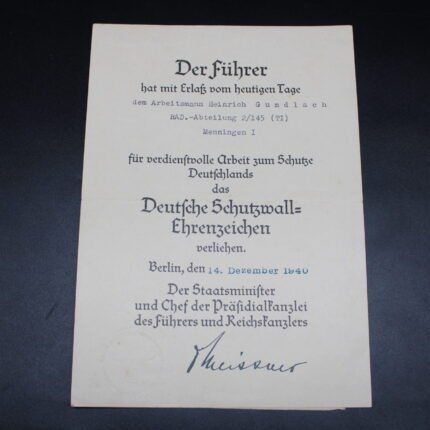 Der Führer
hat mit Erlaß vom heutigen Tage
dem Arbeitsmann Heinrich Gundlach
RAD.-Abteilung 2/145 (TI)
Menningen I
für verdienstvolle Arbeit zum Schutze
Deutschlands
das
Deutsche Schutzwall=
Ehrenzeichen
verliehen.
Berlin, den 14. Dezember 1940
Der Staatsminister
und Chef der Präsidialkanzlei
des Führers und Reichskanzlers
Meissner